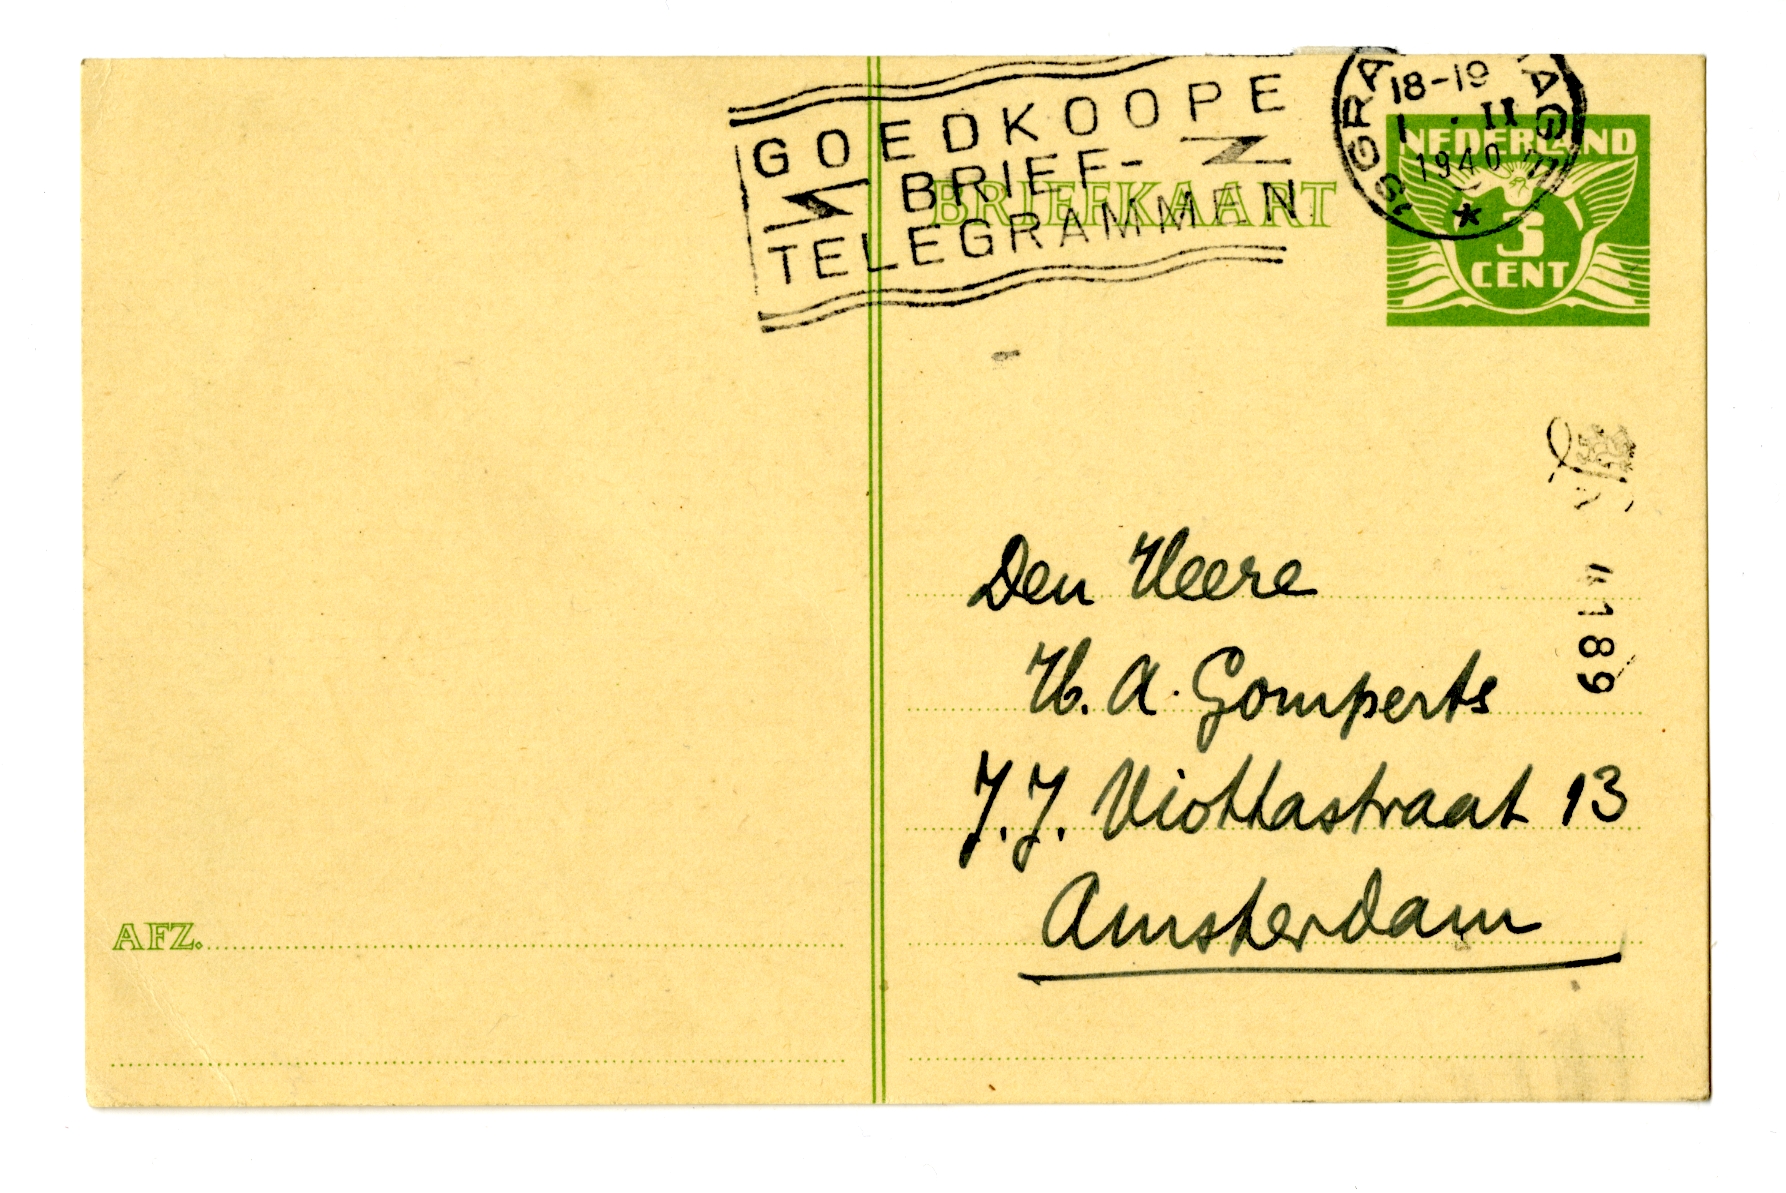 GOEDKOOPE
BRIEF-
TELEGRAMMEN
BRIEFKAART
'SGRA AG
18-19
1 · II
1940
NEDERLAND
3
CENT
Den Heere
H. A. Gomperts
J.J. Viottastraat 13
Amsterdam
AFZ.
189